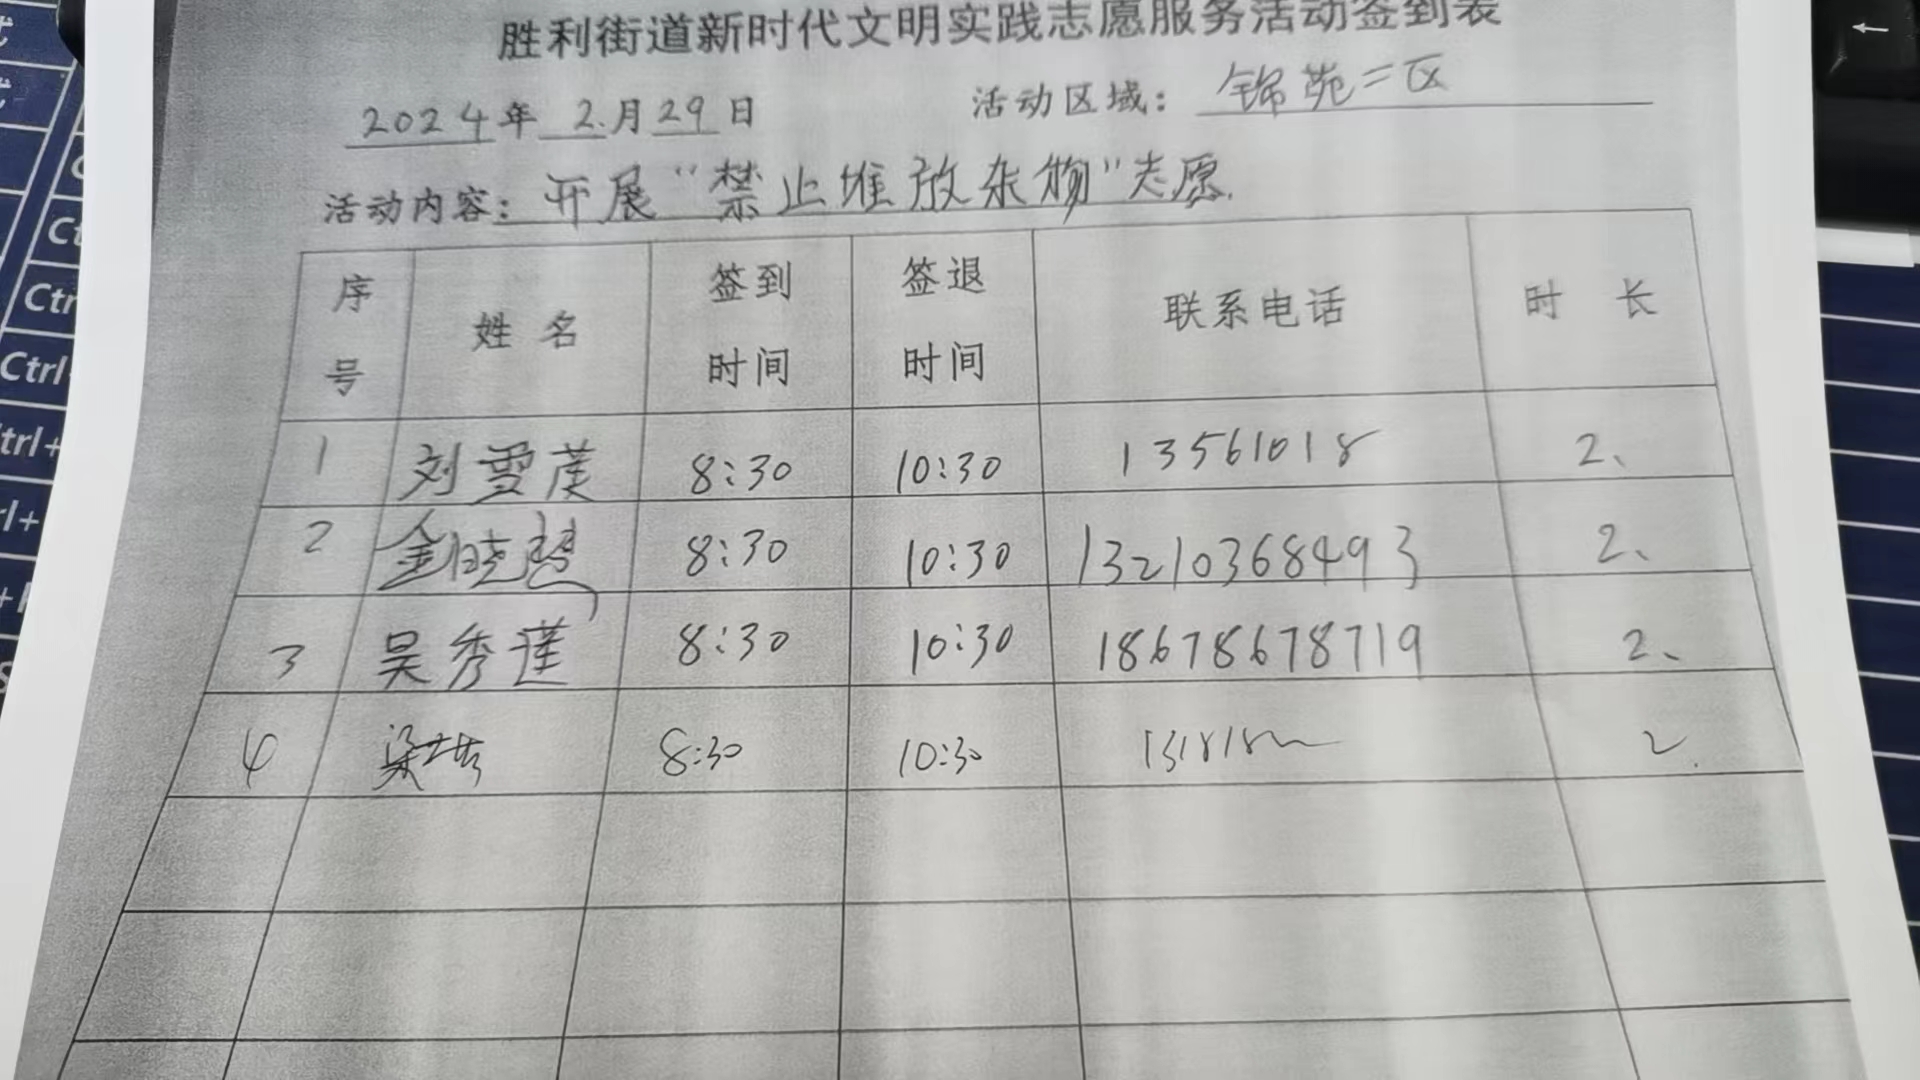 胜利街道新时代文明实践志愿服务活动签到表
2024年 2.月29日 活动区域：锦苑二区
活动内容：开展“禁止堆放杂物”志愿.
序号 姓名 签到时间 签退时间 联系电话 时长
1 刘雪 8:30 10:30 13561018 2、
2 金晓慧 8:30 10:30 13210368493 2、
3 吴秀莲 8:30 10:30 18678678719 2、
4 梁 8:30 10:30 131818 2.
Ctrl
Ctrl+